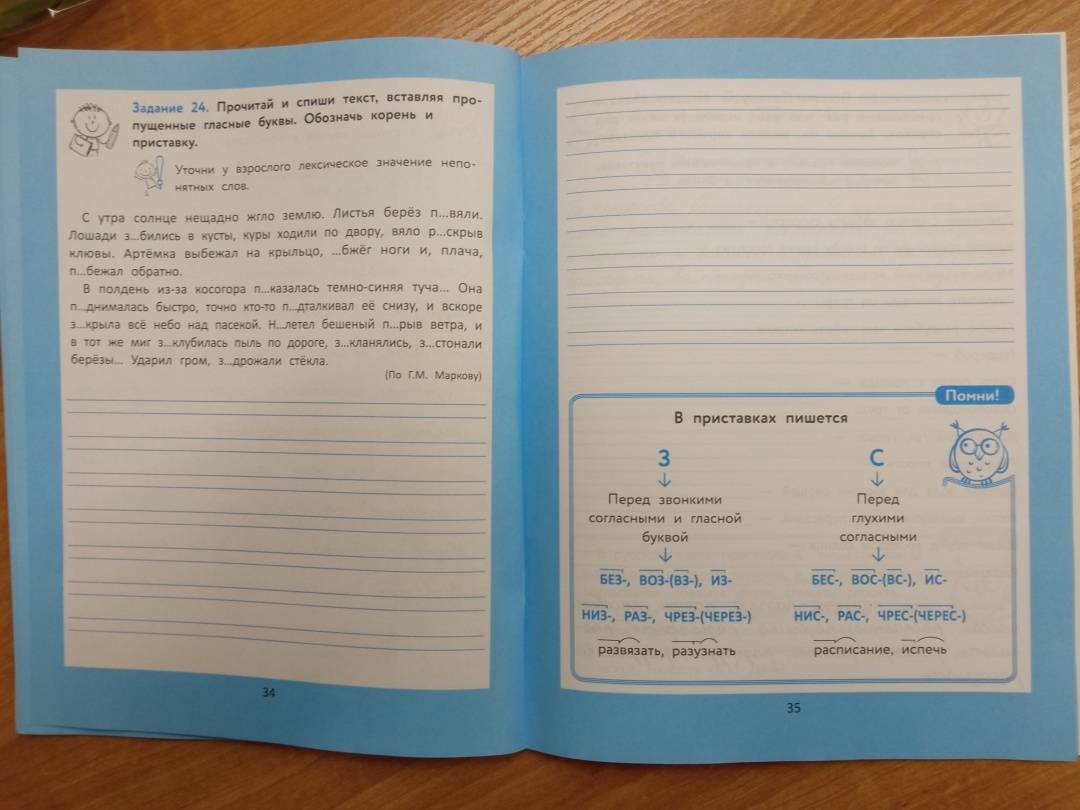 Задание 24. Прочитай и спиши текст, вставляя про-
пущенные гласные буквы. Обозначь корень и
приставку.
Уточни у взрослого лексическое значение непо-
нятных слов.
С утра солнце нещадно жгло землю. Листья берёз п...вяли.
Лошади з...бились в кусты, куры ходили по двору, вяло р...скрыв
клювы. Артёмка выбежал на крыльцо, ...бжёг ноги и, плача,
п...бежал обратно.
В полдень из-за косогора п...казалась темно-синяя туча... Она
п...днималась быстро, точно кто-то п...дталкивал её снизу, и вскоре
з...крыла всё небо над пасекой. Н...летел бешеный п...рыв ветра, и
в тот же миг з...клубилась пыль по дороге, з...кланялись, з...стонали
берёзы... Ударил гром, з...дрожали стёкла.
(По Г.М. Маркову)
34
Помни!
В приставках пишется
З С
Перед звонкими Перед
согласными и гласной глухими
буквой согласными
БЕЗ-, ВОЗ-(ВЗ-), ИЗ- БЕС-, ВОС-(ВС-), ИС-
НИЗ-, РАЗ-, ЧРЕЗ-(ЧЕРЕЗ-) НИС-, РАС-, ЧРЕС-(ЧЕРЕС-)
развязать, разузнать расписание, испечь
35